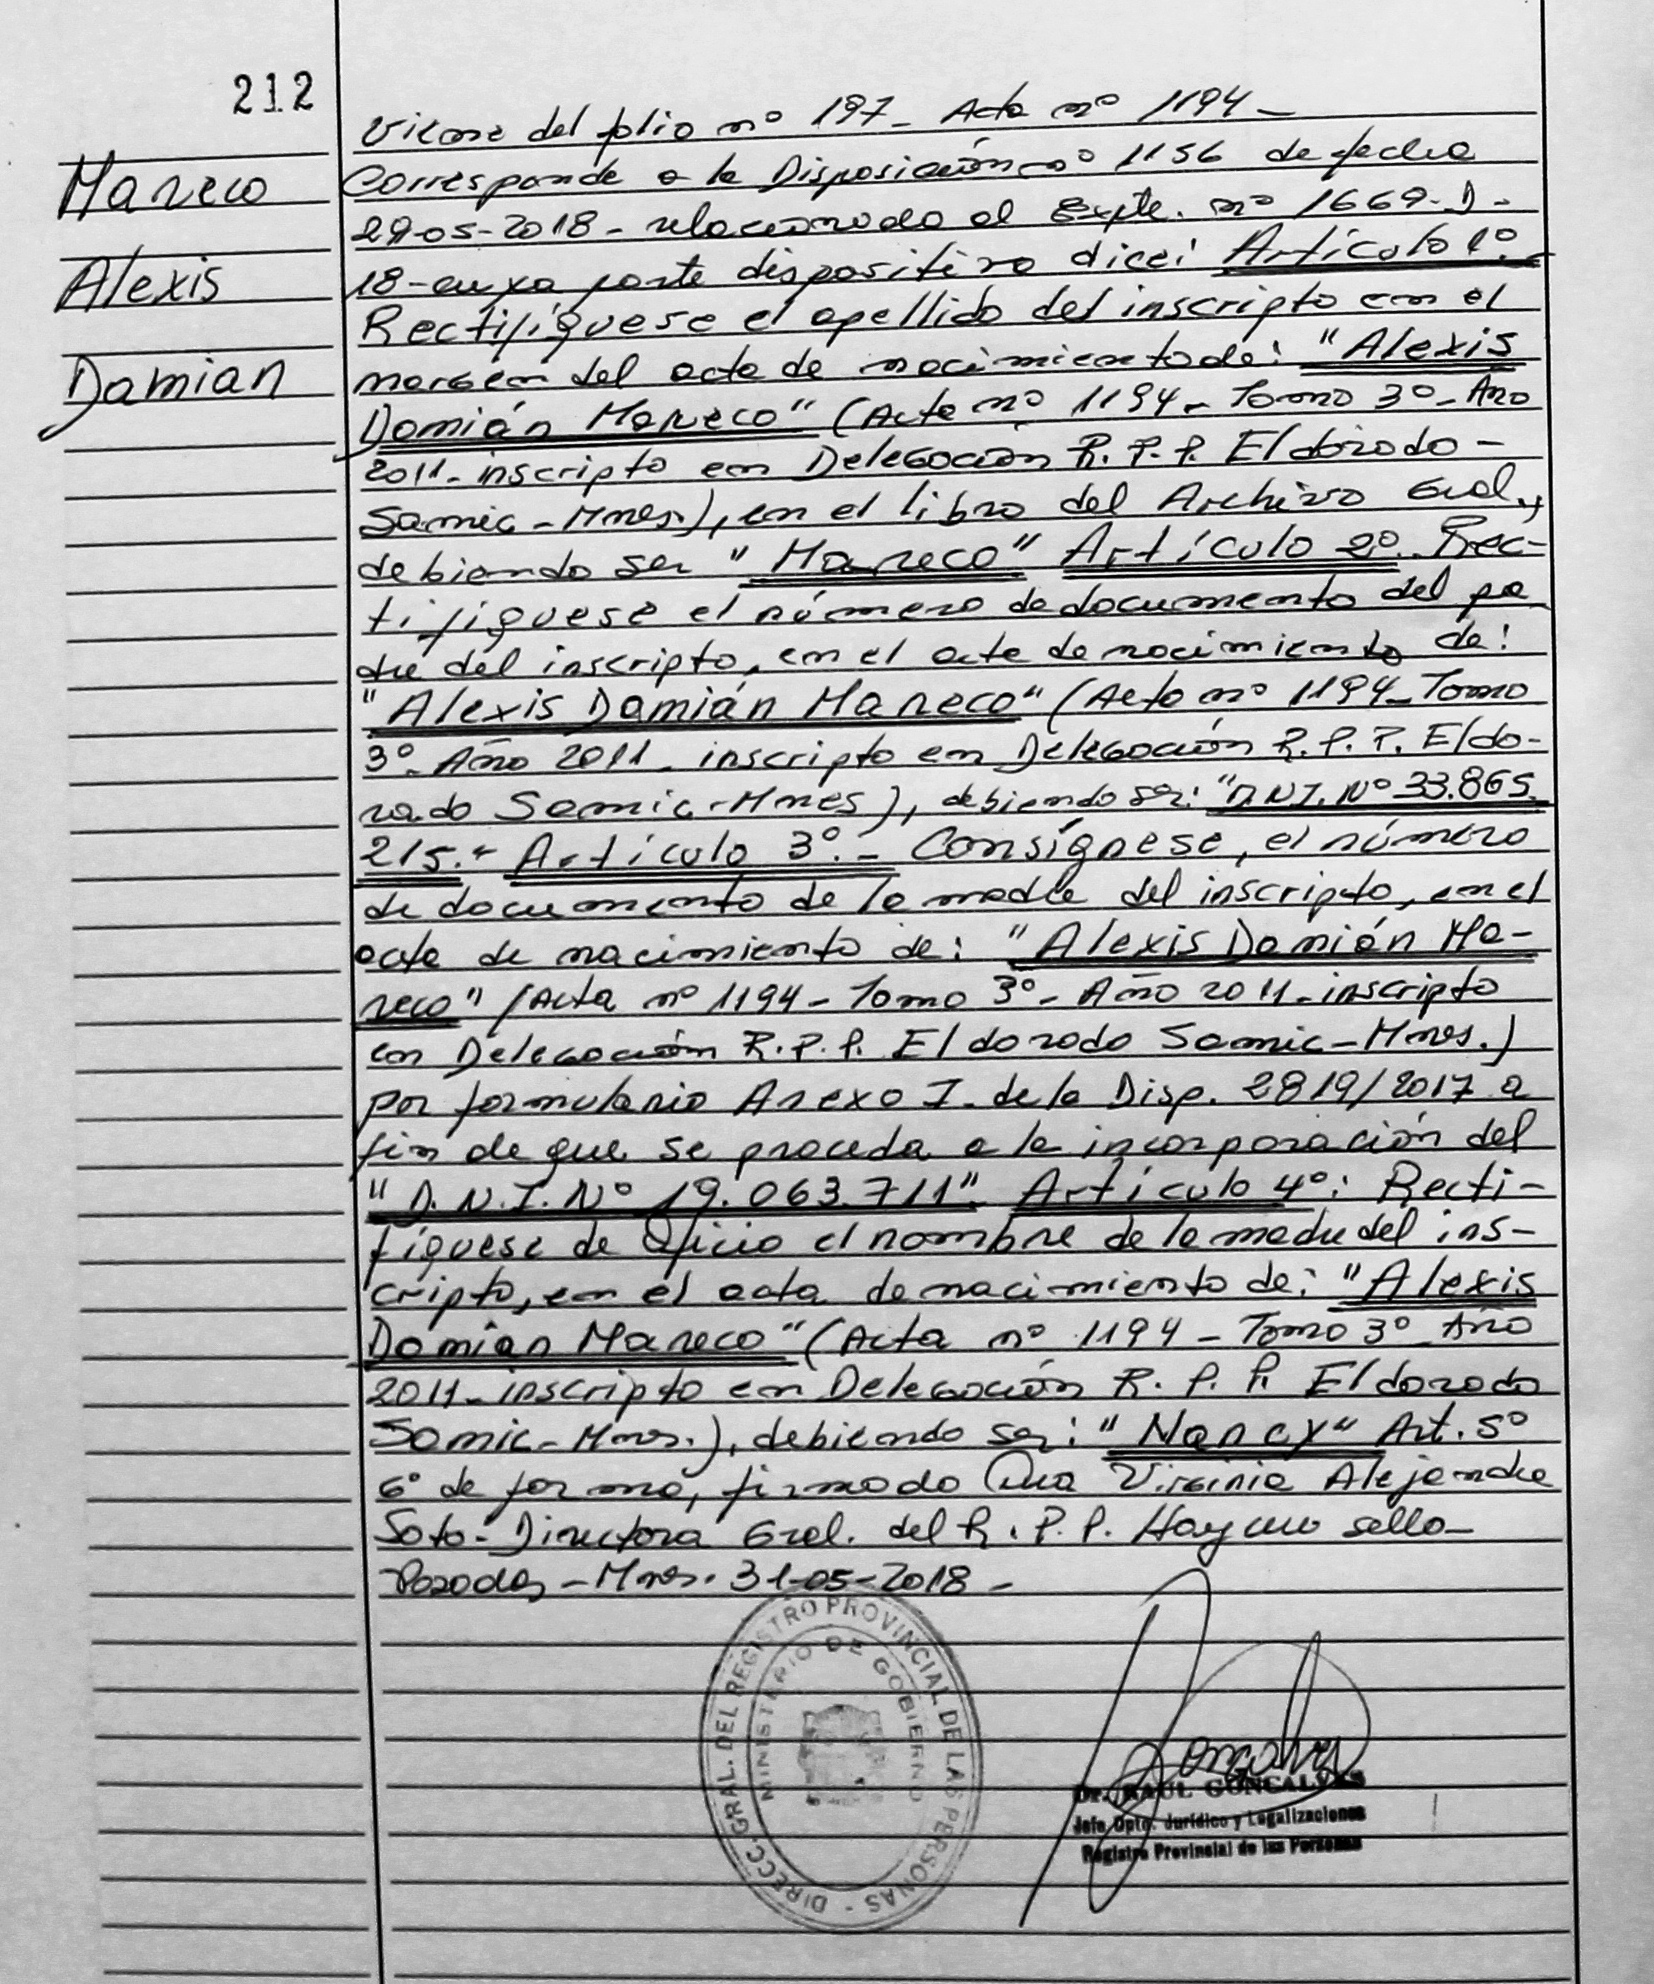 212
Maneco
Alexis
Damian
Vicose del folio nº 197_ Acta nº 1194_
Corresponde a la Disposición nº 1156 de fecha
29-05-2018- relacionado al Expte. nº 1669-D-
18-cuya parte dispositiva dice: Artículo 1º.
Rectifíquese el apellido del inscripto en el
margen del acta de nacimiento de: "Alexis
Damián Maneco" (Acta nº 1194_ Tomo 3º_ Año
2011_ inscripto en Delegación R.P.P. Eldorado-
Samic-Mnes.), en el libro del Archivo Gral.,
debiendo ser "Maneco" Artículo 2º. Rec-
tifíquese el número de documento del pa-
dre del inscripto, en el acta de nacimiento de:
"Alexis Damián Maneco" (Acta nº 1194_ Tomo
3º_ Año 2011_ inscripto en Delegación R.P.P. Eldo-
rado Samic-Mnes), debiendo ser: "D.N.I. Nº 33.865.
215." Artículo 3º.- Consígnese, el número
de documento de la madre del inscripto, en el
acta de nacimiento de: "Alexis Damián Ma-
neco" (Acta nº 1194_ Tomo 3º_ Año 2011_ inscripto
en Delegación R.P.P. Eldorado Samic-Mnes.)
por formulario Anexo I. de la Disp. 2819/2017 a
fin de que se proceda a la incorporación del
"D.N.I. Nº 19.063.711" Artículo 4º: Recti-
fíquese de Oficio el nombre de la madre del ins-
cripto, en el acta de nacimiento de: "Alexis
Damián Maneco" (Acta nº 1194_ Tomo 3º_ Año
2011_ inscripto en Delegación R.P.P. Eldorado
Samic-Mnes.), debiendo ser: "Nancy" Art. 5º
6º de forma, firmado Dra Virginia Alejandra
Soto-Directora Gral. del R.P.P. Hay un sello-
Posadas-Mnes. 31-05-2018-
DIRECC. GRAL. DEL REGISTRO PROVINCIAL DE LAS PERSONAS -
MINISTERIO DE GOBIERNO
Dr. RAUL GONCALVES
Jefe Dpto. Jurídico y Legalizaciones
Registro Provincial de las Personas